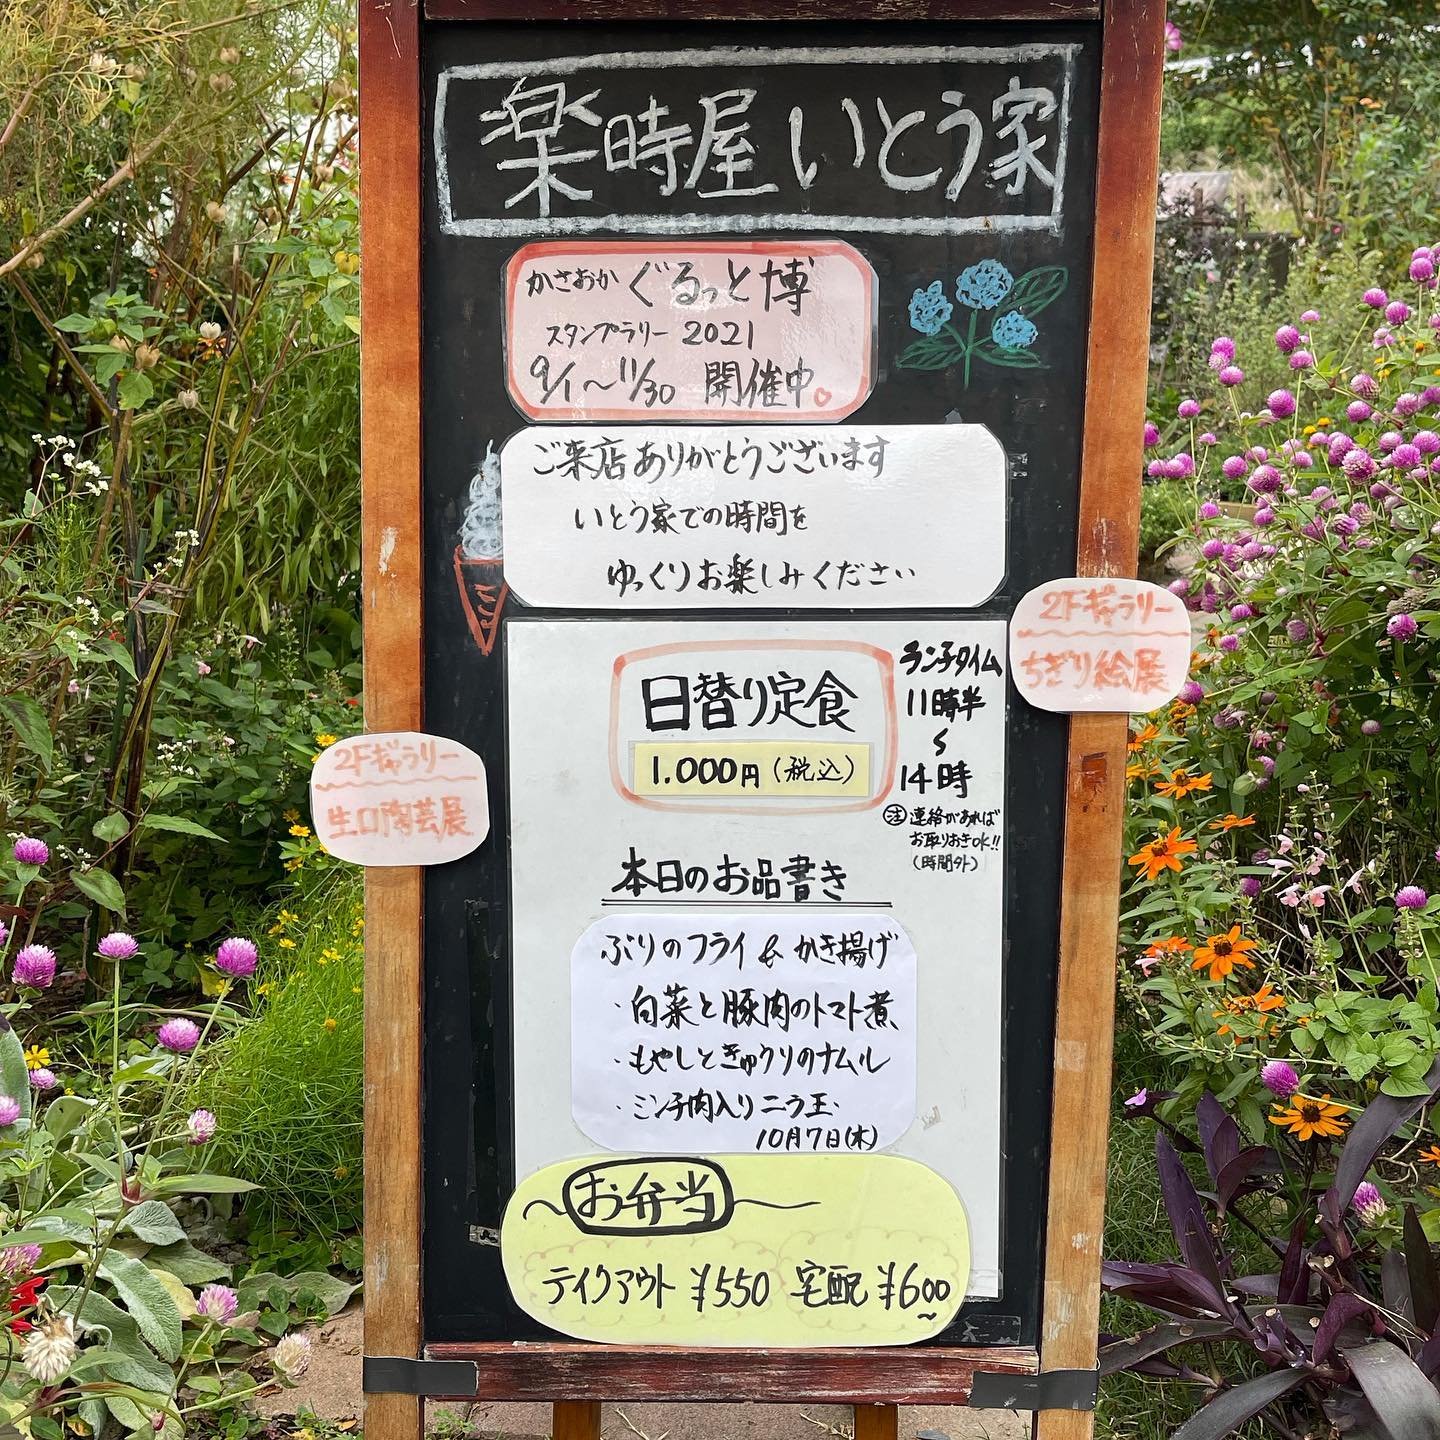 楽時屋いとう家
かさおかぐるっと博
スタンプラリー 2021
9/1～11/30 開催中
ご来店ありがとうございます
いとう家での時間を
ゆっくりお楽しみください
2Fギャラリー
ちぎり絵展
日替り定食
1.000円(税込)
ランチタイム
11時半
〜
14時
㊟連絡があれば
お取りおきOK!!
(時間外)
2Fギャラリー
生口陶芸展
本日のお品書き
ぶりのフライ & かき揚げ
・白菜と豚肉のトマト煮
・もやしときゅうりのナムル
・ミンチ肉入りニラ玉
10月7日(木)
お弁当
テイクアウト ¥550 宅配 ¥600~